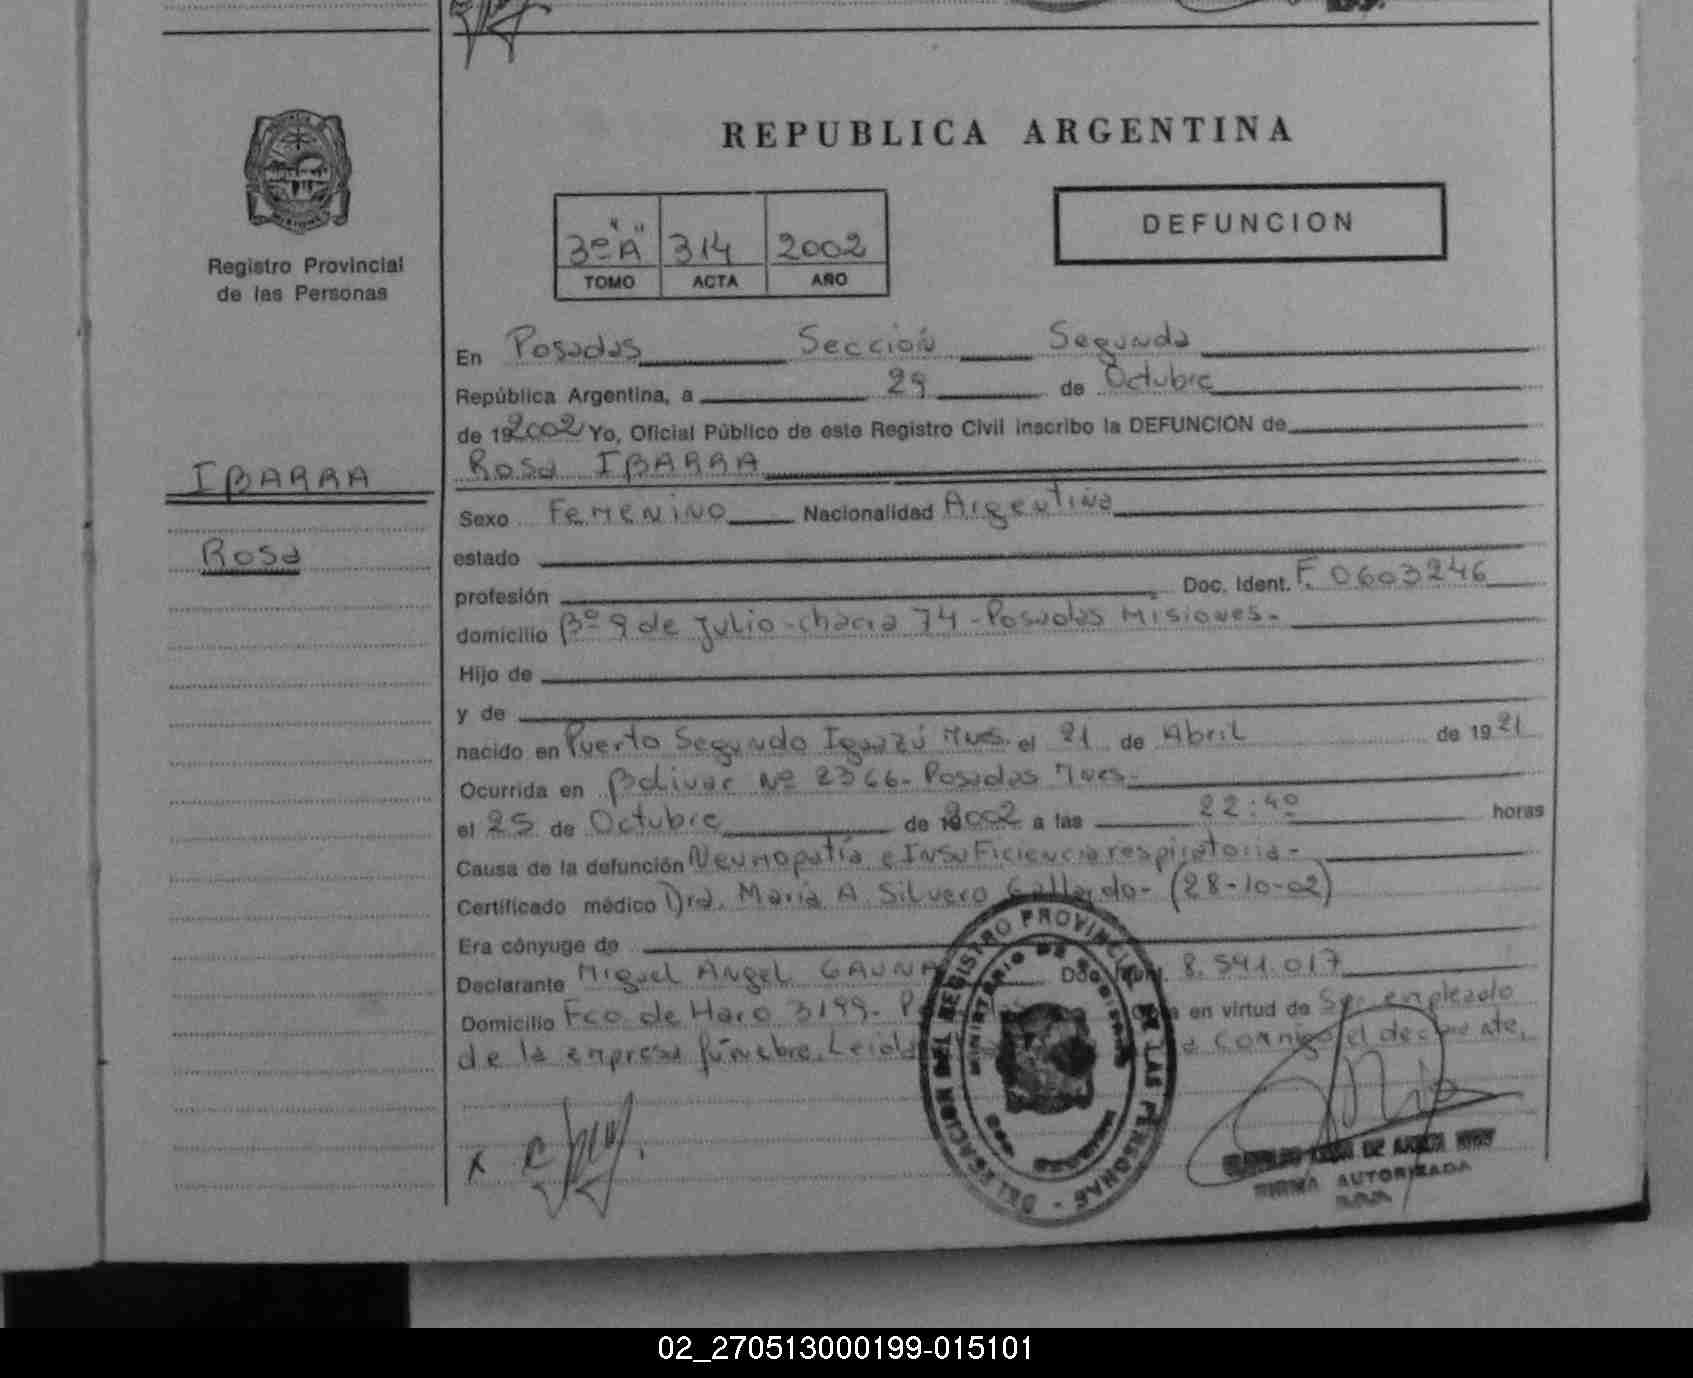 REPUBLICA ARGENTINA
Registro Provincial
de las Personas
3º "A" 314 2002
TOMO ACTA AÑO
DEFUNCION
En Posadas Sección Segunda
República Argentina, a 29 de Octubre
de 192002 Yo, Oficial Público de este Registro Civil inscribo la DEFUNCION de
IBARRA
Rosa IBARRA
Sexo Femenino Nacionalidad Argentina
Rosa
estado
profesión Doc. Ident. F. 0603246
domicilio Bº 9 de Julio - chacra 74 - Posadas Misiones.-
Hijo de
y de
nacido en Puerto Segundo Iguazú Mnes. el 21 de Abril de 1921
Ocurrida en Bolivar Nº 2366- Posadas Mnes.-
el 25 de Octubre de 2002 a las 22:40 horas
Causa de la defunción Neumopatía e Insuficiencia respiratoria-
Certificado médico Dra. María A Silvero Gallardo- (28-10-02)
Era cónyuge de
Declarante Miguel Angel GAUNA 8.541.017
Domicilio Fco de Haro 3199- en virtud de Ser empleado
de la empresa fúnebre. Leida conmigo el declarante,
DELEGACION DEL REGISTRO PROVINCIAL DE LAS PERSONAS
MINISTERIO DE GOBIERNO
FIRMA AUTORIZADA
02_270513000199-015101